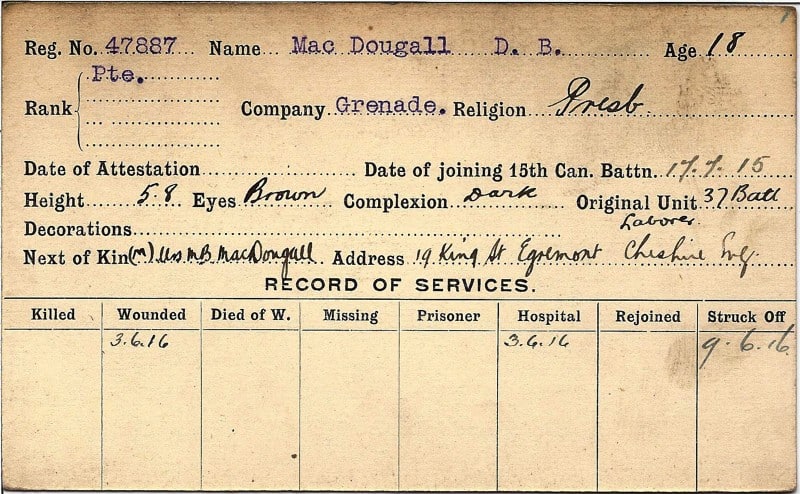 Reg. No. 47887 Name Mac Dougall D. B. Age 18
Pte.
Rank Company Grenade. Religion Presb
Date of Attestation Date of joining 15th Can. Battn. 17.7.15
Height 5.8 Eyes Brown Complexion Dark Original Unit 37 Batt
Decorations Laborer
Next of Kin (M) Mrs M B MacDougall Address 19 King St Egremont Cheshire Eng.
RECORD OF SERVICES.
Killed Wounded Died of W. Missing Prisoner Hospital Rejoined Struck Off
3.6.16 3.6.16 9.6.16